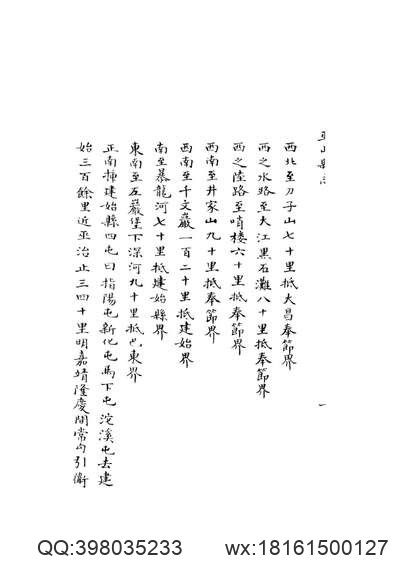 巫山縣志
西北至刀子山七十里抵大昌奉節界
西之水路至大江黑石灘八十里抵奉節界
西之陸路至哨樓六十里抵奉節界
西南至井家山九十里抵奉節界
西南至千文巖一百二十里抵建始界
南至慕龍河七十里抵建始縣界
東南至左巖堡下深河九十里抵巴東界
正南插建始縣四屯曰指陽屯新化屯馬下屯沱溪屯去建
始三百餘里近巫治止三四十里明嘉靖隆慶間常內引衛
一
QQ:398035233 wx:18161500127